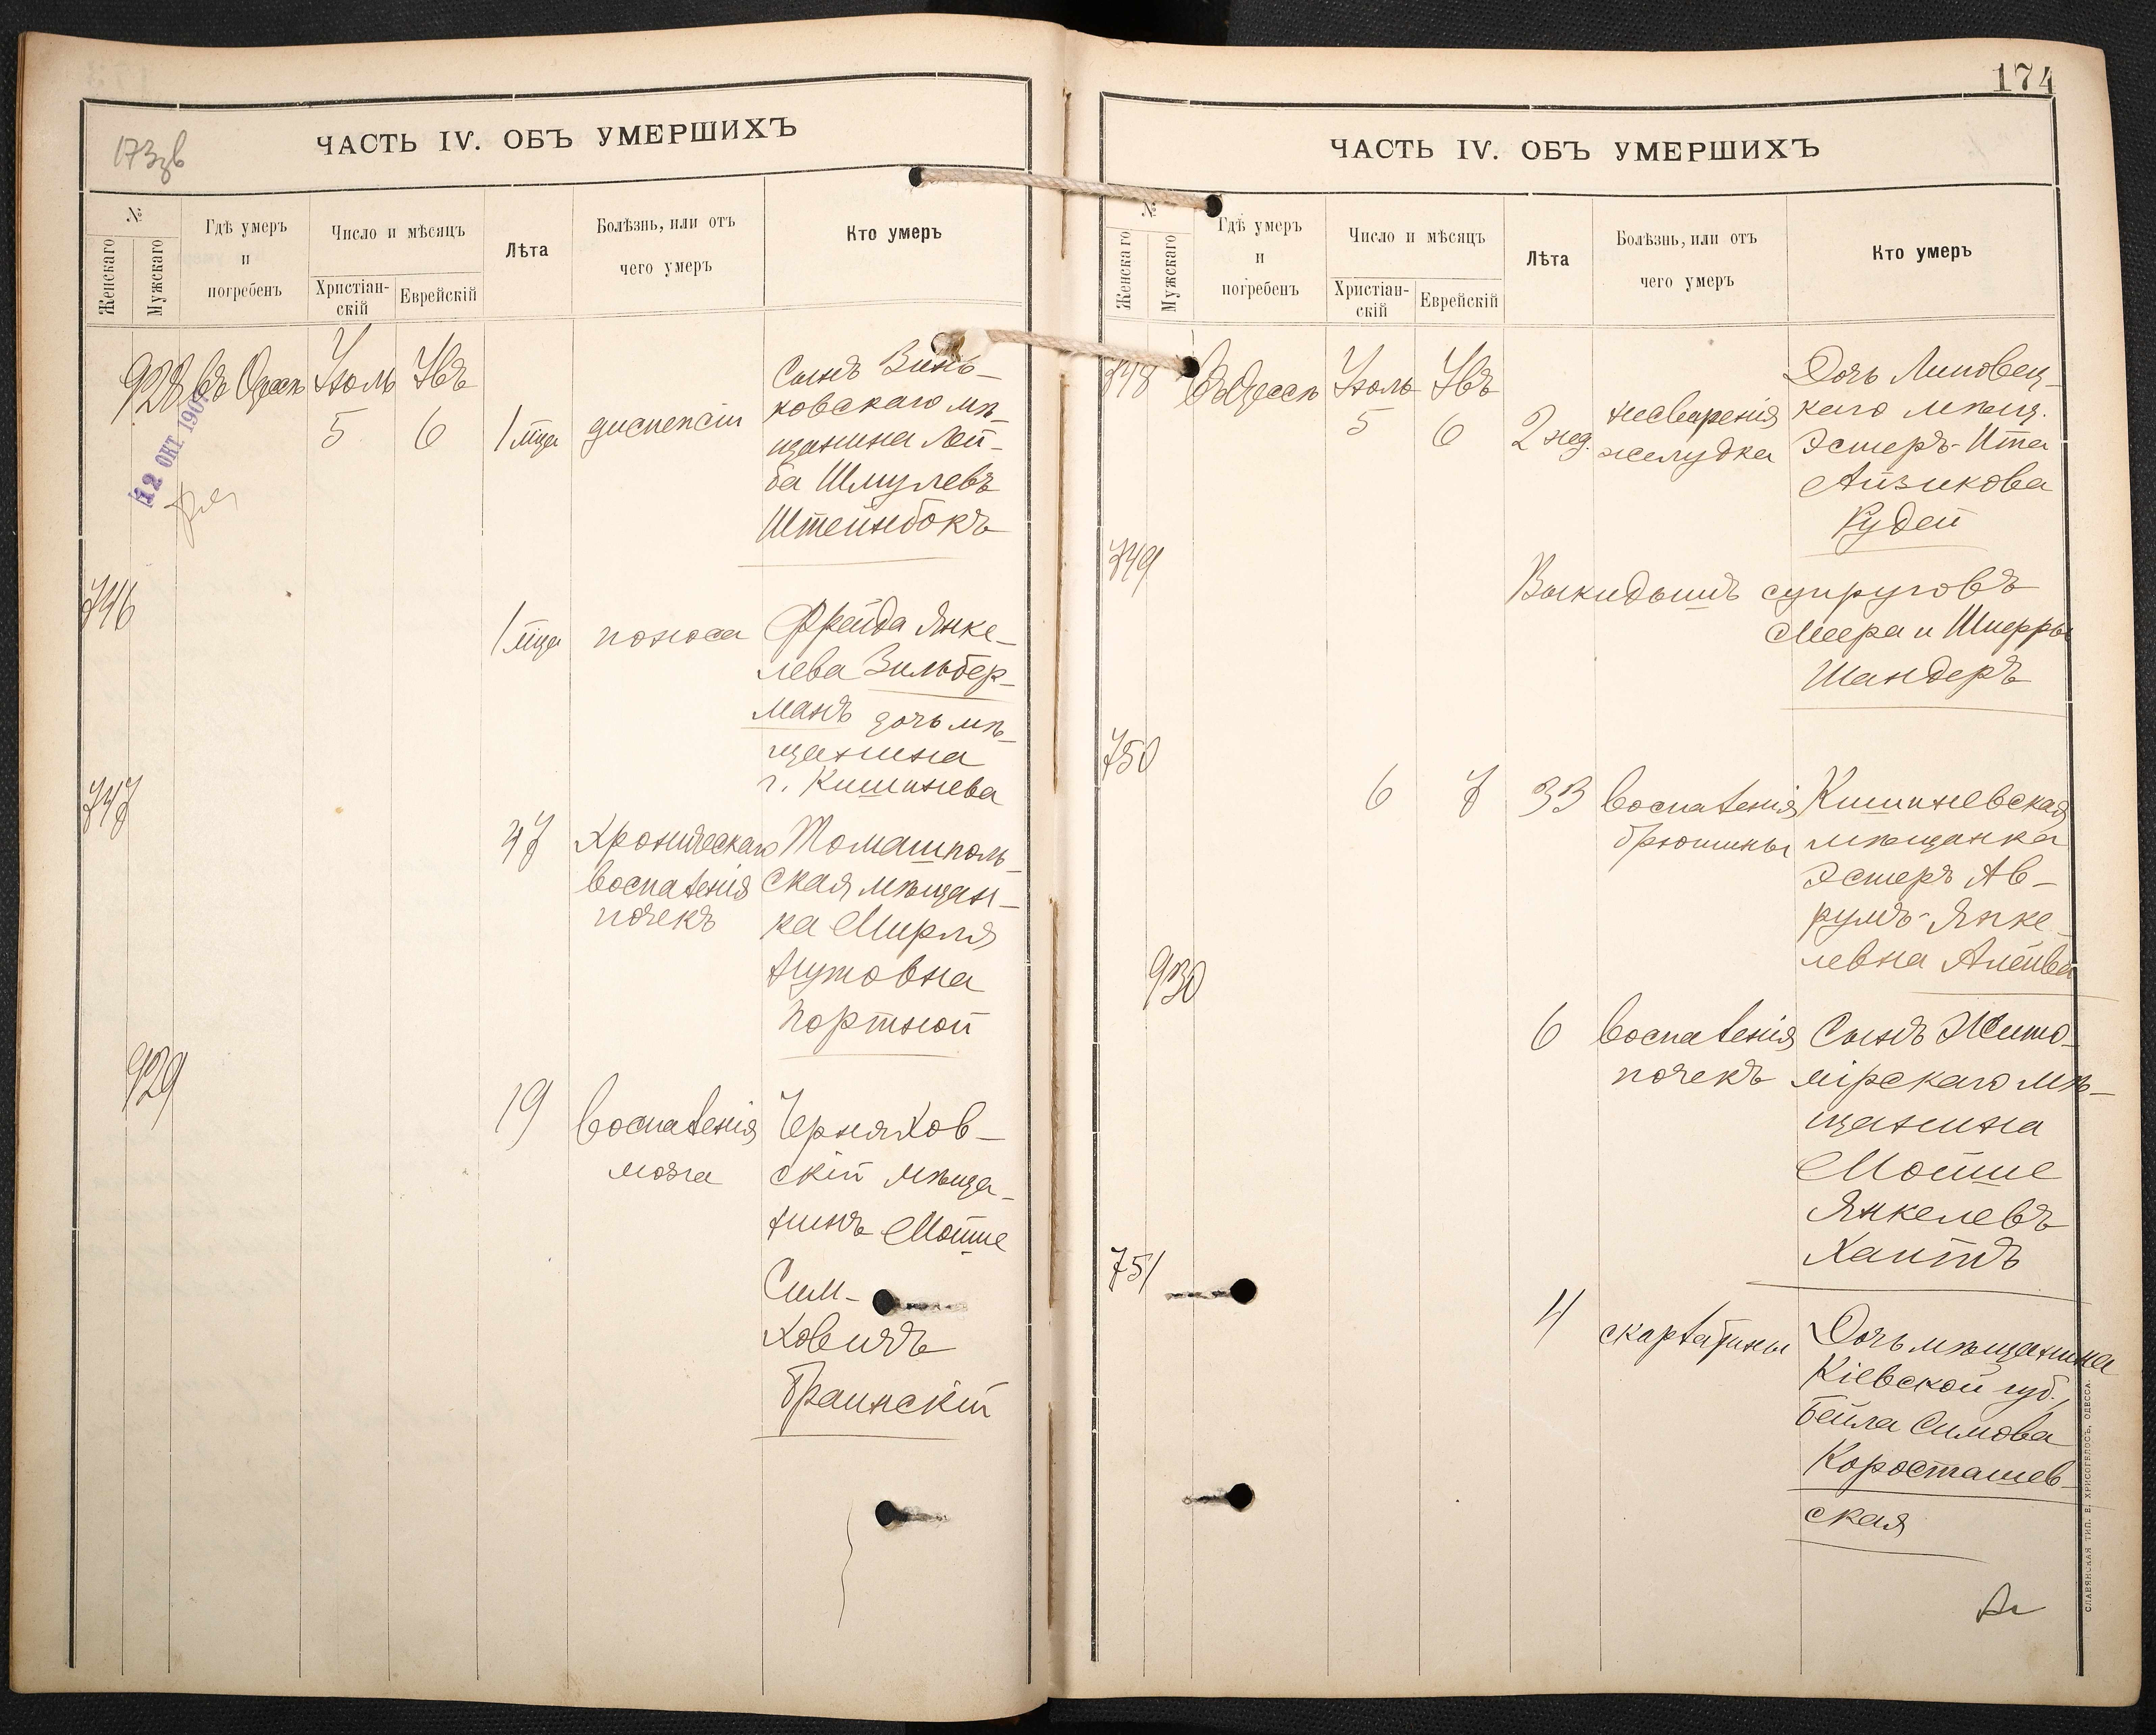 173об
ЧАСТЬ IV. ОБЪ УМЕРШИХЪ
№
Женскаго
Мужскаго
Гдѣ умеръ
и
погребенъ
Число и мѣсяцъ
Христіан-
скій
Еврейскій
Лѣта
Болѣзнь, или отъ
чего умеръ
Кто умеръ
928 въ Одессѣ Іюль Ϸвъ
5 6 1 мца диспепсіи
Сынъ Винь-
ковскаго мѣ-
щанина Лей-
ба Шмулевъ
Штейнбокъ
12 ОКТ. 190
746
1 мца поноса
Фрейда Янке-
лева Зильбер-
манъ дочь мѣ-
щанина
г. Кишинева
747
47 Хроническаго
воспаленія
почекъ
Томашполь-
ская мѣщан-
ка Мирля
Нутовна
Портной
929
19 воспаленія
мозга
Черняхов-
скій мѣща-
нинъ Мойше
Сим-
ховичъ
Браинскій
174
ЧАСТЬ IV. ОБЪ УМЕРШИХЪ
№
Женскаго
Мужскаго
Гдѣ умеръ
и
погребенъ
Число и мѣсяцъ
Христіан-
скій
Еврейскій
Лѣта
Болѣзнь, или отъ
чего умеръ
Кто умеръ
748 Въ Одессѣ Іюль
5 6 2 нед. несваренія
желудка
Дочь Липовец-
каго мѣщ.
Эстеръ-Ита
Айзикова
Кудей
749
Выкидышъ супруговъ
Меера и Шперры
Шандеръ
750
6 7 33 воспаленія
брюшины
Кишиневская
мѣщанка
Эстеръ Ав-
румъ-Янке-
левна
930
6 воспаленія
почекъ
Сынъ Жито-
мірскаго мѣ-
щанина
Мойше
Янкелевъ
Хаитъ
751
4 скарлатины
Дочь мѣщанина
Кіевской губ.,
Бейла Симова
Коросташев-
ская
СЛАВЯНСКАЯ ТИП. Е. ХРИСОГЕЛОСЪ, ОДЕССА.